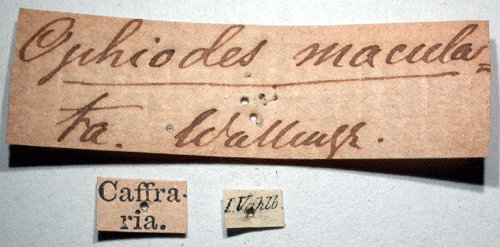 Ophiodes macula=
tra. Wallengr.
Caffra-
ria.
J. Wahlb.